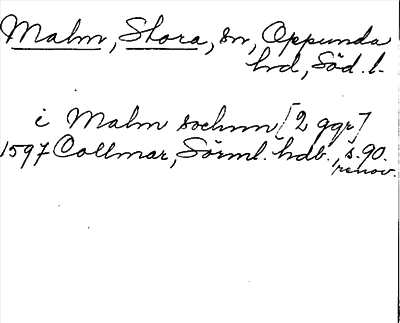 Malm, Stora, sn, Oppunda
hd, Söd. l.
i Malm sochnn [2 ggr]
1597 Collmar, Sörml. hdb., s. 90.
renov.